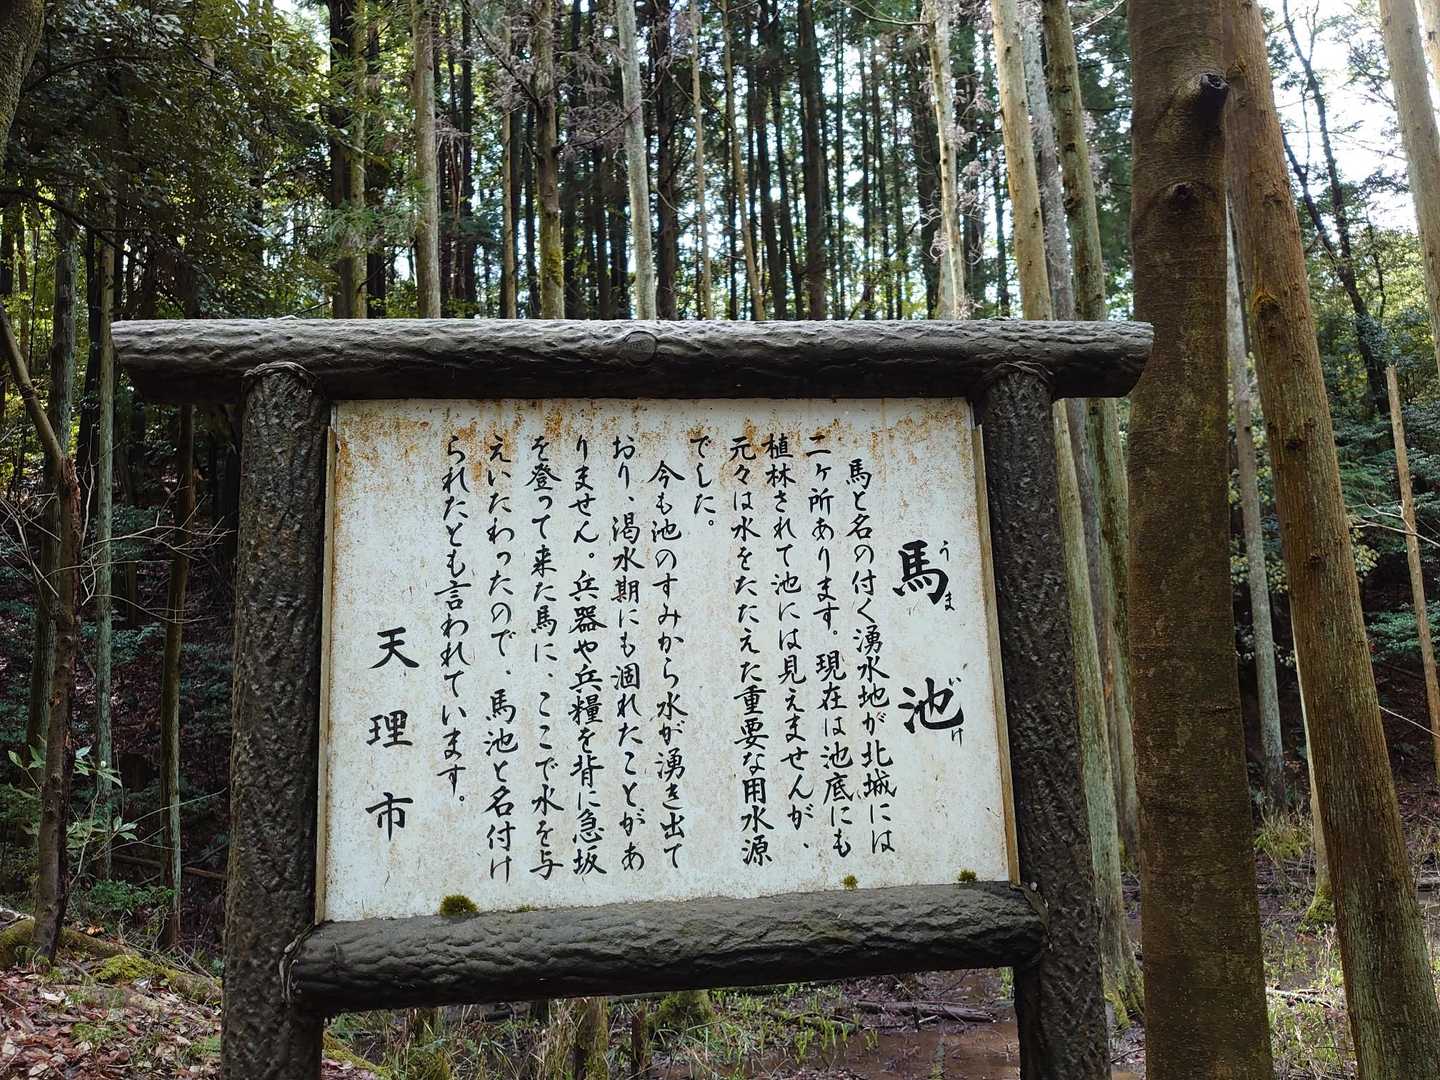 馬池
うま
いけ
馬と名の付く湧水地が北城には
二ヶ所あります。現在は池底にも
植林されて池には見えませんが、
元々は水をたたえた重要な用水源
でした。
今も池のすみから水が湧き出て
おり、渇水期にも涸れたことがあ
りません。兵器や兵糧を背に急坂
を登って来た馬に、ここで水を与
えいたわったので、馬池と名付け
られたとも言われています。
天理市